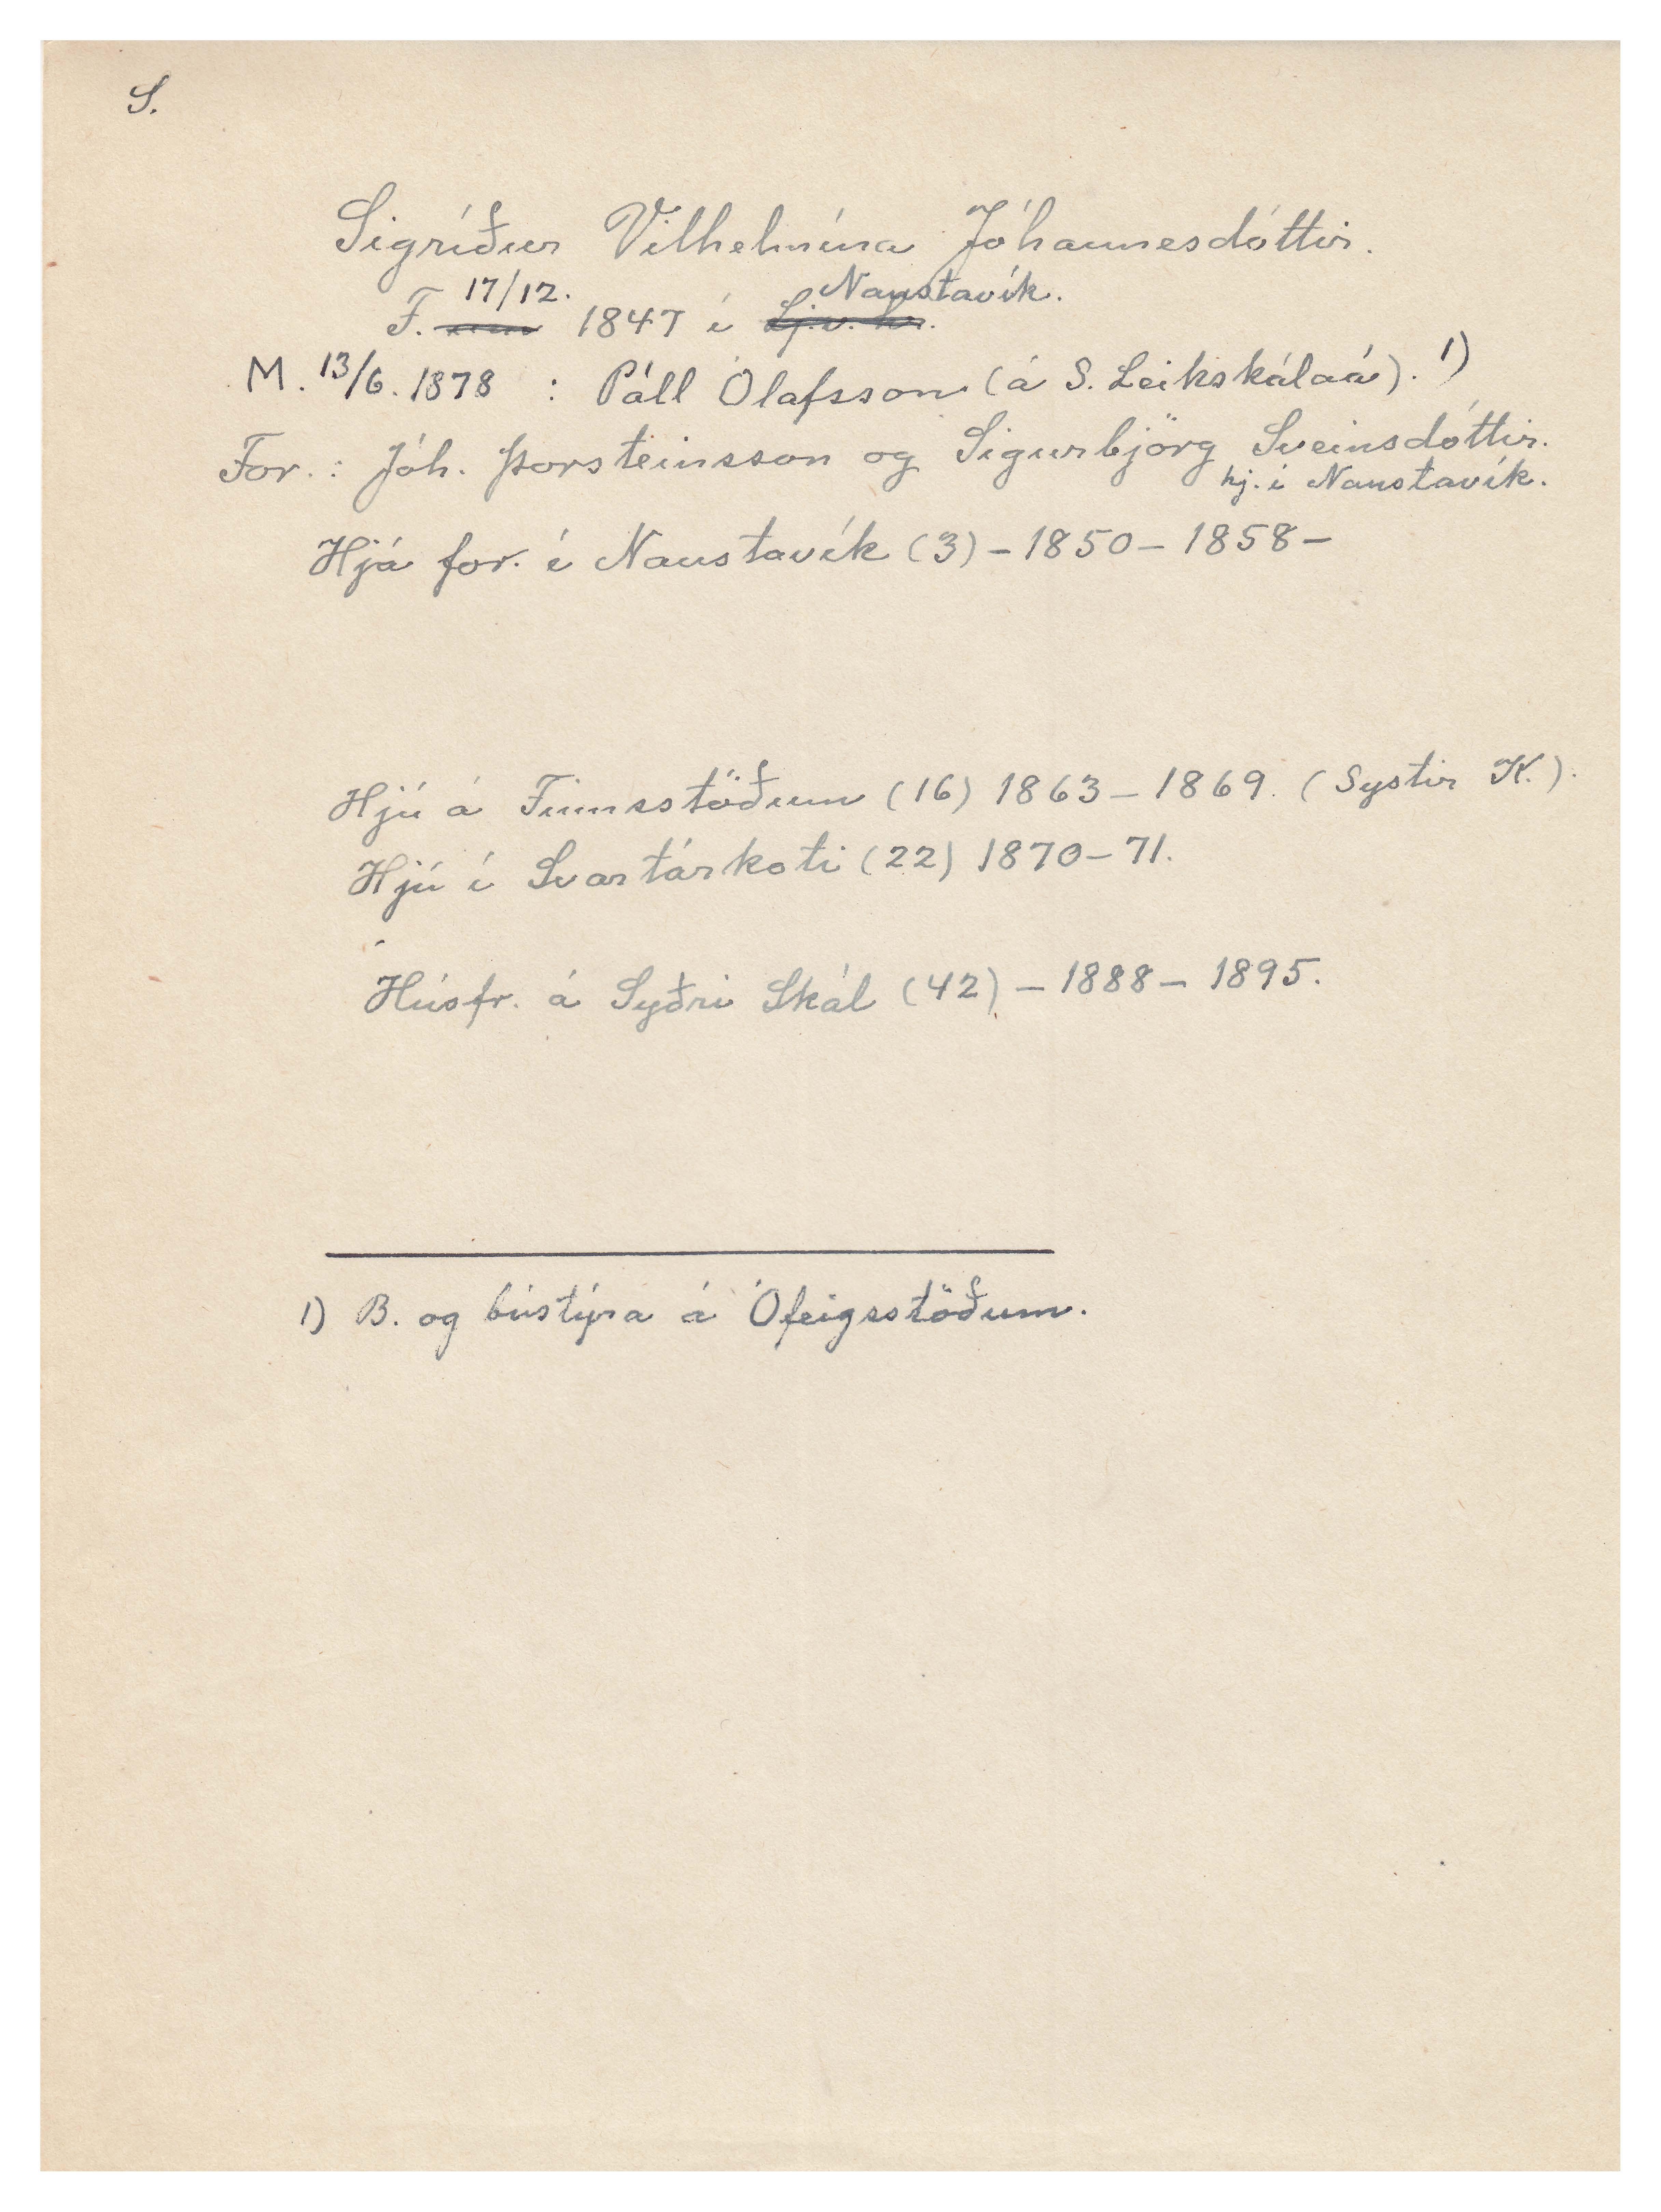 S.
Sigríður Vilhelmína Jóhannesdóttir.
17/12. Naustavík.
F. 1847 í Lj.v.hr.
M. 13/6. 1878 : Páll Ólafsson (á S. Leikskálaá). 1)
For.: Jóh. Þorsteinsson og Sigurbjörg Sveinsdóttir.
hj. í Naustavík.
Hjá for. í Naustavík (3) – 1850 – 1858 –
Hjú á Finnsstöðum (16) 1863 – 1869. (Systir K.).
Hjú í Svartárkoti (22) 1870 – 71.
Húsfr. á Syðri Skál (42) – 1888 – 1895.
1) B. og bústýra á Ófeigsstöðum.